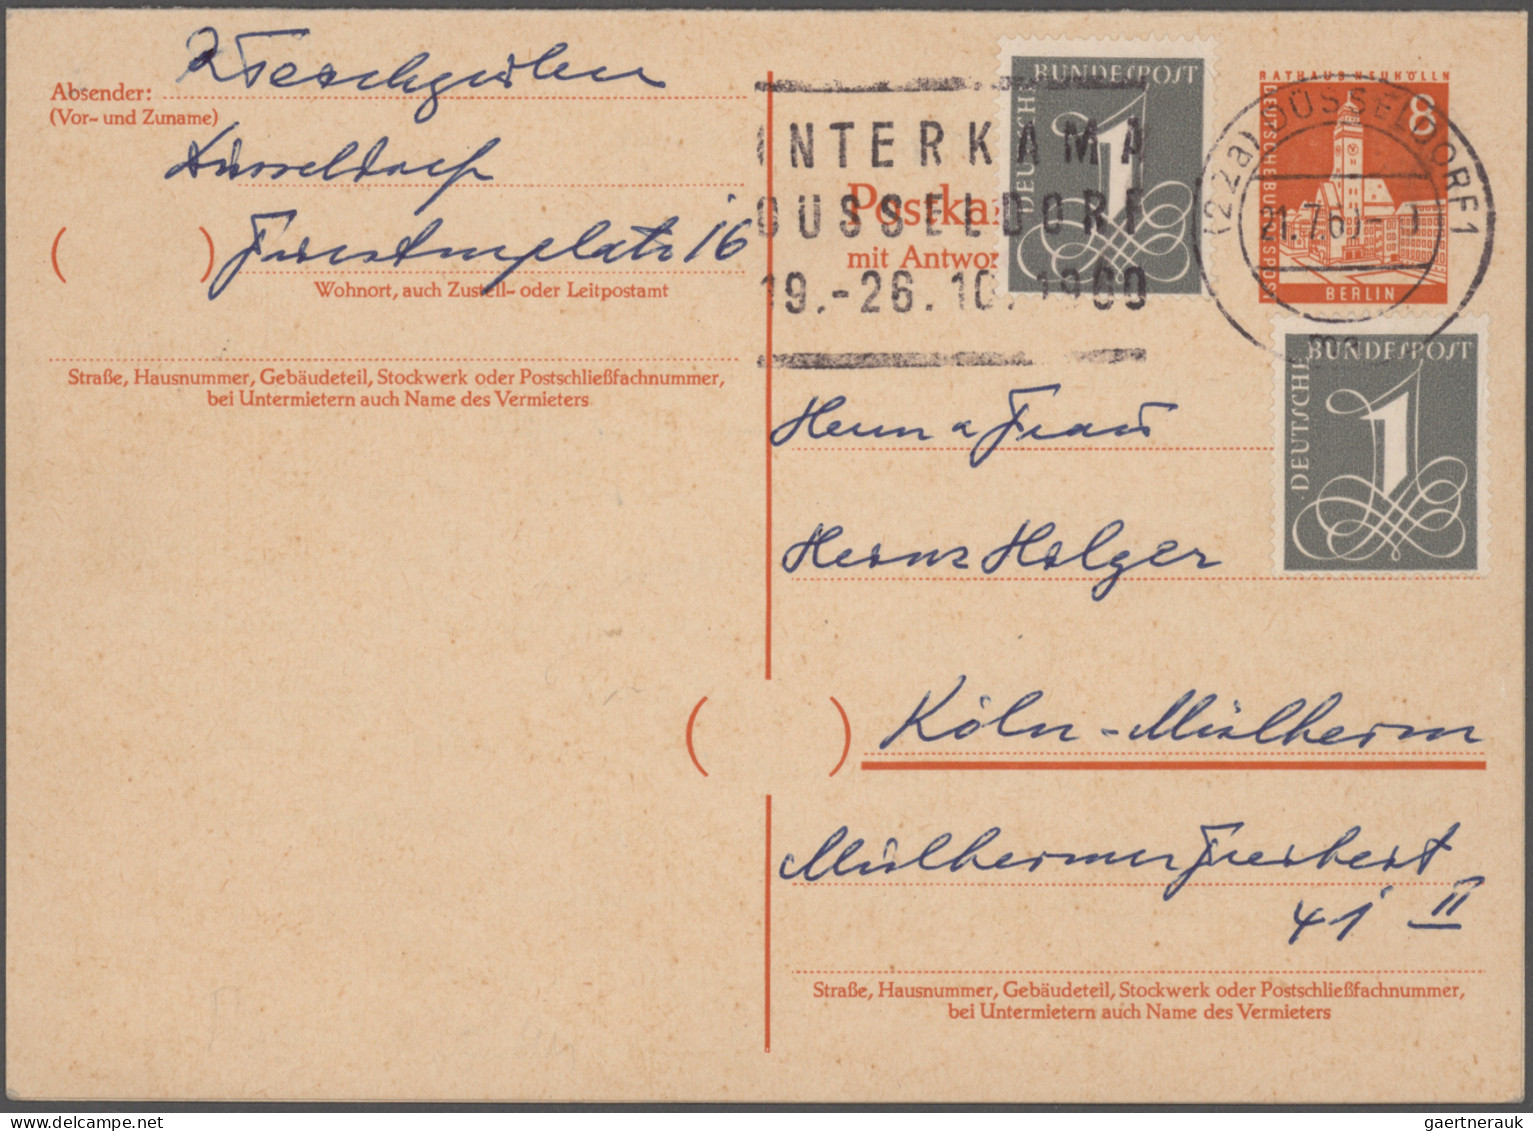 Absender:
(Vor- und Zuname)
Düsseldorf
( ) Fürstenplatz 16
Wohnort, auch Zustell- oder Leitpostamt
Straße, Hausnummer, Gebäudeteil, Stockwerk oder Postschließfachnummer,
bei Untermietern auch Name des Vermieters
INTERKAMA
DÜSSELDORF
19.-26.10.1960
Postka
mit Antwor
DEUTSCHE
BUNDESPOST
1
RATHAUS NEUKÖLLN
DEUTSCHE BUNDESPOST
8
BERLIN
(22a) DÜSSELDORF 1
21.7.60
DEUTSCHE
BUNDESPOST
1
Herrn u Frau
Heinz Holger
( ) Köln-Mülheim
Mülheimer
41 II
Straße, Hausnummer, Gebäudeteil, Stockwerk oder Postschließfachnummer,
bei Untermietern auch Name des Vermieters
gaertnerauk